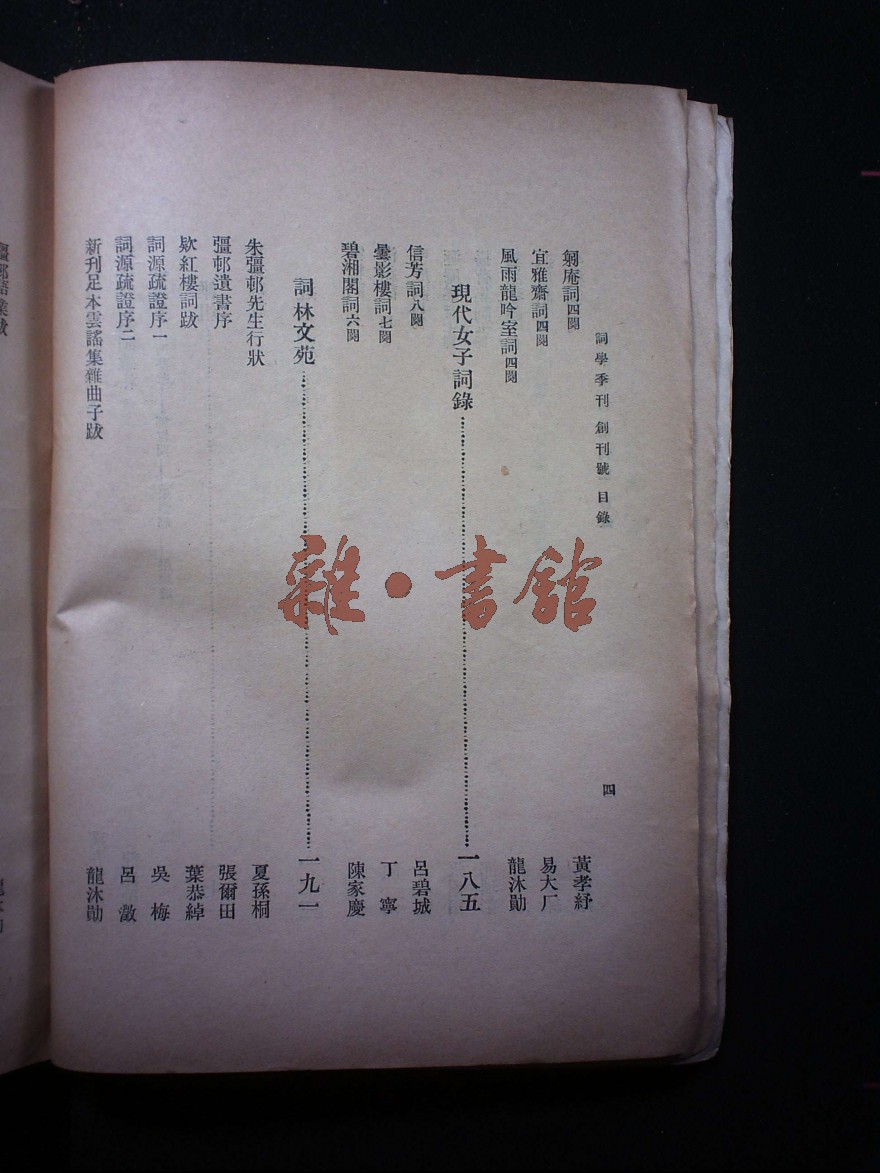 詞學季刊 創刊號 目錄 四
匑庵詞四闋 黃孝紓
宜雅齋詞四闋 易大厂
風雨龍吟室詞四闋 龍沐勛
現代女子詞錄 一八五
信芳詞八闋 呂碧城
曇影樓詞七闋 丁寧
碧湘閣詞六闋 陳家慶
詞林文苑 一九一
朱彊邨先生行狀 夏孫桐
彊邨遺書序 張爾田
欵紅樓詞跋 葉恭綽
詞源疏證序一 吳梅
詞源疏證序二 呂澂
新刊足本雲謠集雜曲子跋 龍沐勛
雜·書館